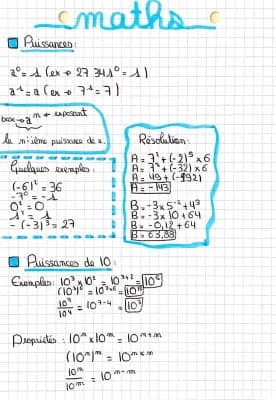 maths
Puissances :
a⁰ = 1 (ex → 27 341⁰ = 1)
a¹ = a (ex → 7¹ = 7)
base → aⁿ → exposant
la n-ième puissance de a.
Quelques exemples :
(-6)² = 36
-7⁰ = -1
0² = 0
1¹ = 1
- (-3)³ = 27
Résolution :
A = 7² + (-2)⁵ × 6
A = 7² + (-32) × 6
A = 49 + (-192)
A = -143
B = -3 × 5⁻² + 4³
B = -3 × 10 + 64
B = -0,12 + 64
B = 63,88
Puissances de 10 :
Exemples : 10³ × 10² = 10³⁺² = 10⁵
10⁷⁻⁴ = 10³
Propriétés : 10ⁿ × 10ᵐ = 10ⁿ⁺ᵐ
(10ⁿ)ᵐ = 10ⁿˣᵐ
10ⁿ
10ᵐ = 10ⁿ⁻ᵐ